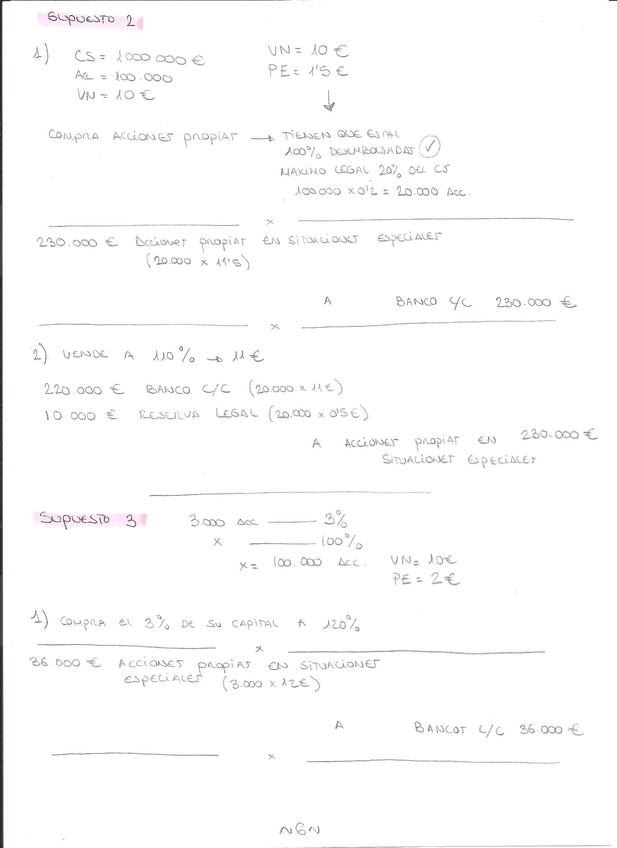 SUPUESTO 2
1) CS = 1000 000 €
VN = 10 €
ACC = 100.000
PE = 1'5 €
VN = 10 €
COMPRA ACCIONES PROPIAS → TIENEN QUE ESTAR
100% DESEMBOLSADAS ✓
MAXIMO LEGAL 20% DEL CS
100000 x 0'2 = 20.000 ACC.
x
230.000 € ACCIONES PROPIAS EN SITUACIONES ESPECIALES
(20.000 x 11'5)
A BANCO C/C 230.000 €
x
2) VENDE A 110% → 11 €
220.000 € BANCO C/C (20.000 x 11€)
10 000 € RESERVA LEGAL (20.000 x 0'5€)
A ACCIONES PROPIAS EN 230.000 €
SITUACIONES ESPECIALES
SUPUESTO 3 3.000 ACC — 3%
x — 100%
x = 100.000 ACC. VN = 10€
PE = 2€
1) COMPRA EL 3% DE SU CAPITAL A 120%
x
36.000 € ACCIONES PROPIAS EN SITUACIONES
ESPECIALES (3.000 x 12€)
A BANCOS C/C 36.000 €
x
~6~